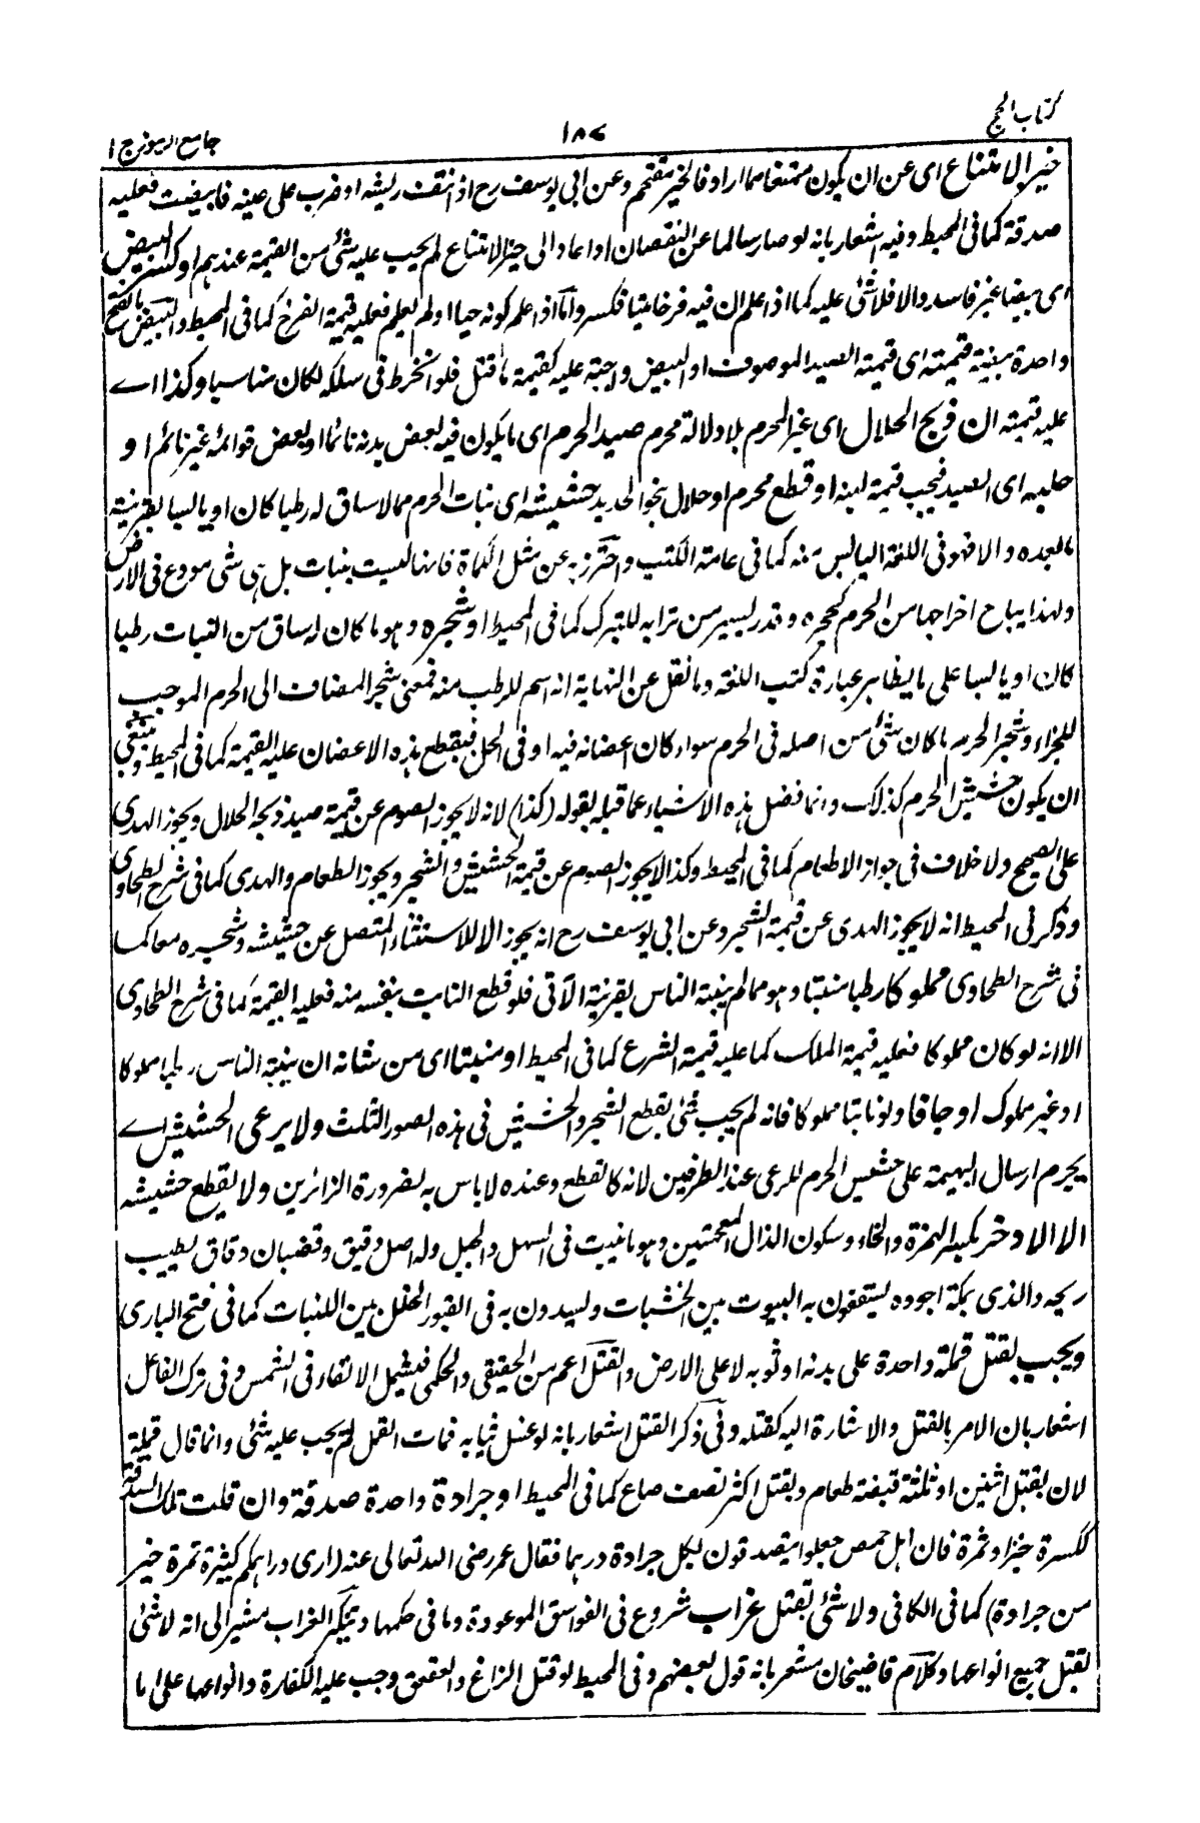 كتاب الحج
١٨٧
جامع الرموز ج ١
خير الامتناع اى عن ان يكون ممتنعا مما اراد فالخير مقتحم وعن ابى يوسف رح اذا نتفت ريشه او ضرب على عينه فابيضت فعليه
صدقة كما فى المحيط وفيه اشعار بانه لو صار سالما عن النقصان او اعاد الى حيز الامتناع لم يجب عليه شئ من القيمة عندهم او كسر البيض
اى بيضا غير فاسد والا فلا شئ عليه كما اذا علم ان فيه فرخا ميتا فكسر واما اذا علم كونه حيا او لم يعلم فعليه قيمة الفرخ كما فى المحيط والبيض بالفتح
واحدة بيضة قيمته اى قيمة الصيد الموصوف او البيض واجبة عليه كقيمة ما قتل فلو انخرط فى سلكه لكان مناسبا وكذا اے
عليه قيمته ان ذبح الحلال اى غير المحرم بلا دلالة محرم صيد الحرم اى ما يكون فيه بعض بدنه نائما او بعض قوائمه غير نائم او
حلبه اى الصيد فيجب قيمة لبنه او قطع محرم او حلال بنحو الحديد حشيشه اى نبات الحرم مما لا ساق له رطبا كان او يابسا بقرينة
ما بعده والا فهو فى اللغة اليابس منه كما فى عامة الكتب واحترز به عن مثل الكماة فانها ليست بنبات بل هى شى مودع فى الارض
ولهذا يباح اخراجها من الحرم كحجره وقدر يسير من ترابه للتبرك كما فى المحيط او شجره وهو ما كان له ساق من النبات رطبا
كان او يابسا على ما يظاهر عبارة كتب اللغة وما نقل عن النهاية انه اسم للرطب منه فمعنى شجر المضاف الى الحرم الموجب
للجزاء وشجر الحرم ما كان شئ من اصله فى الحرم سواء كان اغصانه فيه او فى الحل فبقطع هذه الاغصان عليه القيمة كما فى المحيط وينبغى
ان يكون حشيش الحرم كذلك وانما فصل هذه الاشياء عما قبله بقوله (كذا) لانه لا يجوز الصوم عن قيمة صيد ذبحه الحلال ويجوز الهدى
على الصحيح ولا خلاف فى جواز الاطعام كما فى المحيط وكذا لا يجوز الصوم عن قيمة الحشيش والشجر ويجوز الطعام والهدى كما فى شرح الطحاوى
وذكر فى المحيط انه لا يجوز الهدى عن قيمة الشجر وعن ابى يوسف رح انه يجوز الا للاستثناء المتصل عن حشيشه وشجره معا كما
فى شرح الطحاوى مملوكا رطبا منبتا وهو مما لم ينبته الناس بقرينة الآتى فلو قطع النابت بنفسه منه فعليه القيمة كما فى شرح الطحاوى
الا انه لو كان مملوكا فعليه قيمة الملك كما عليه قيمة الشرع كما فى المحيط او منبتا اى من شانه ان ينبته الناس رطبا مملوكا
او غير مملوك او جافا ولو نابتا مملوكا فانه لم يجب شئ بقطع الشجر والحشيش فى هذه الصور الثلث ولا يرعى الحشيش اے
يحرم ارسال البهيمة على حشيش الحرم للرعى عند الطرفين لانه كالقطع وعنده لا باس به لضرورة الزائرين ولا يقطع حشيشه
الا الاذخر بكسر الهمزة والخاء وسكون الذال المعجمتين وهو ما نبت فى السهل والجبل وله اصل دقيق وقضبان دقاق يطيب
ريحه والذى بمكة اجوده يسقفون به البيوت بين الخشبات ويسدون به فى القبور الخلل بين اللبنات كما فى فتح البارى
ويجب بقتل قملة واحدة على بدنه او ثوبه لا على الارض والقتل اعم من الحقيقى والحكمى فيشمل الالقاء فى الشمس وفى ترك الفاعل
اشعار بان الامر بالقتل والاشارة اليه كقتله وفى ذكر القتل اشعار بانه لو غسل ثيابه فمات القمل لم يجب عليه شئ وانما قال قملة
لان بقتل اثنين او ثلثة قبضة طعام وبقتل اكثر نصف صاع كما فى المحيط او جرادة واحدة صدقة وان قلت تلك الصدقة
ككسرة خبز او ثمرة فان اهل حمص جعلوا يتصدقون بكل جرادة درهما فقال عمر رضى الله تعالى عنه (ارى دراهمكم كثيرة تمرة خير
من جرادة) كما فى الكافى ولا شئ بقتل غراب شروع فى الفواسق الموعودة وما فى حكمها وتنكير الغراب مشير الى انه لا شئ
بقتل جميع انواعها وكلام قاضيخان مشعر بانه قول بعضهم وفى المحيط لو قتل الزاغ والعقعق وجب عليه الكفارة وانواعها على ما